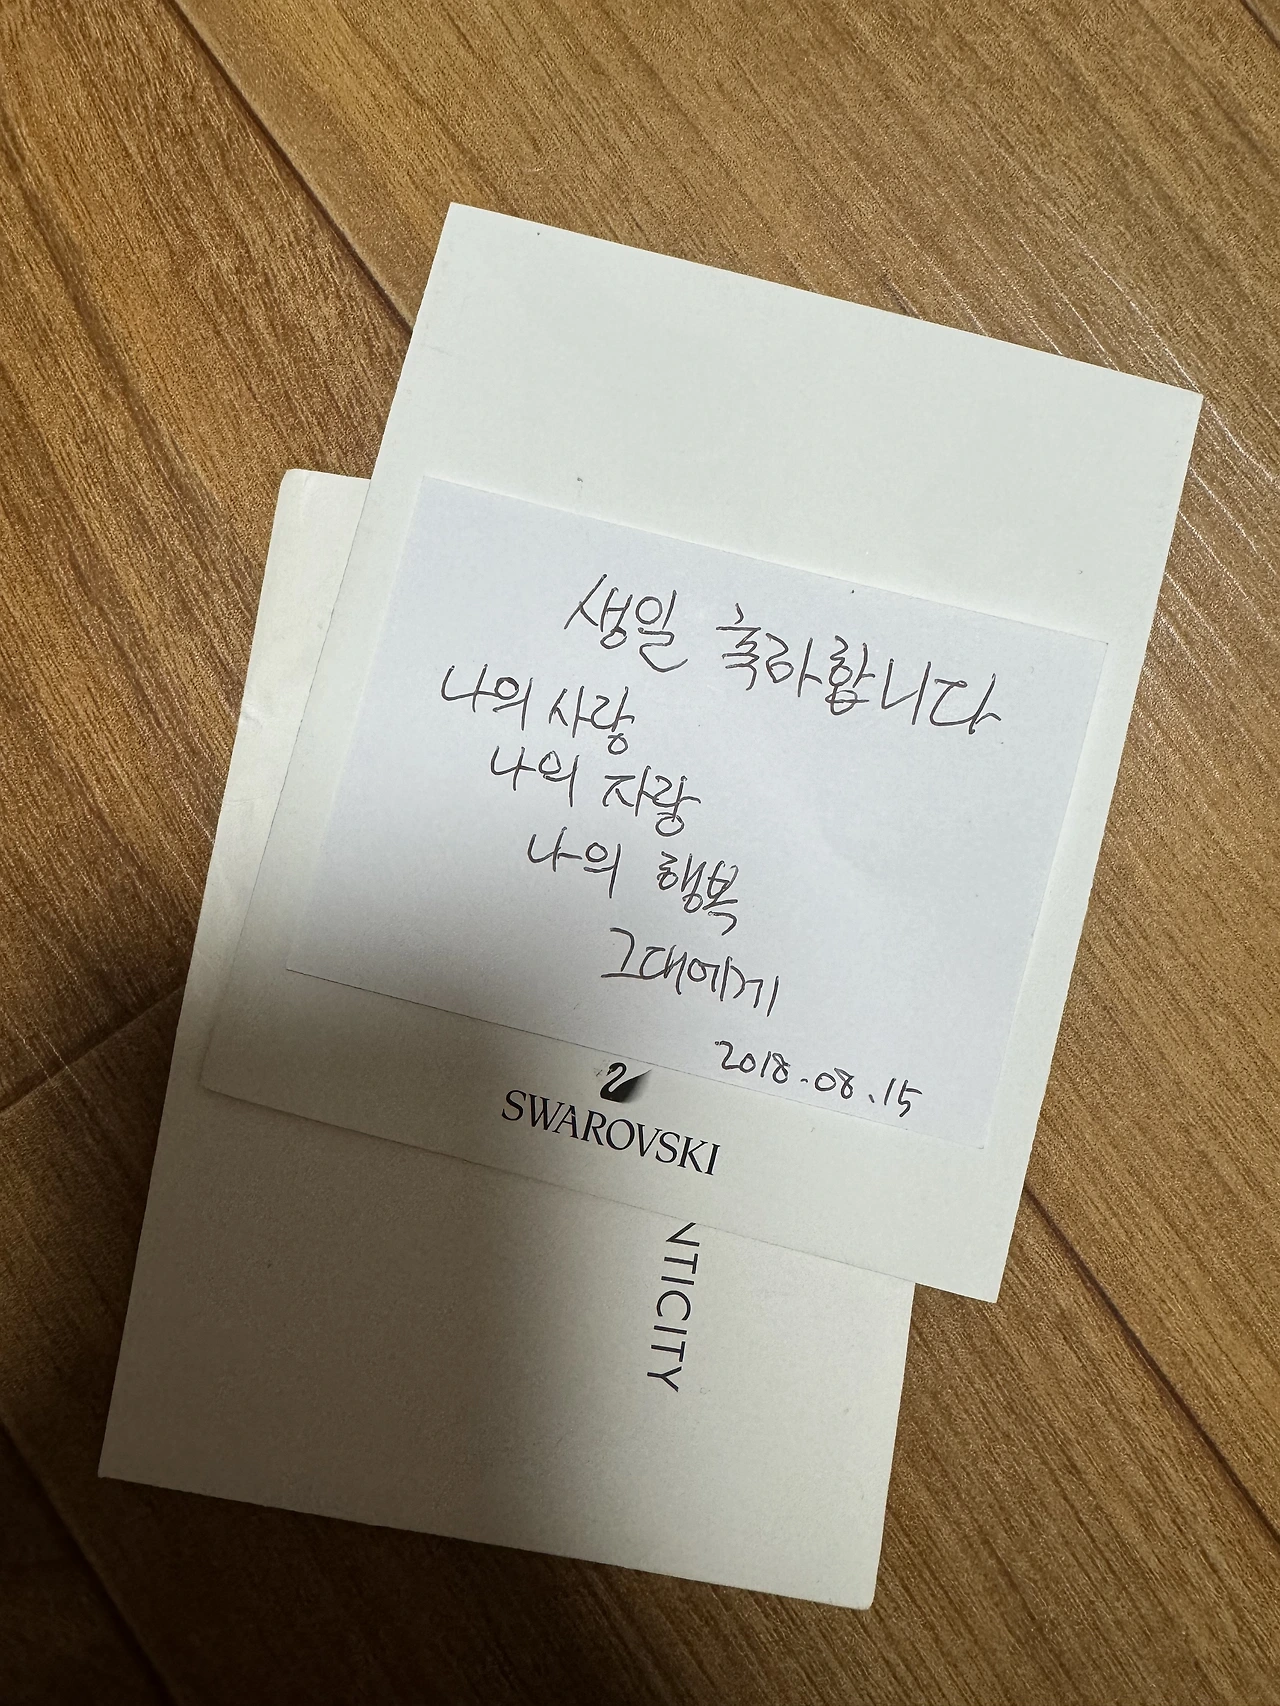 생일 축하합니다
나의 사랑
나의 자랑
나의 행복
그대에게
2018.08.15
SWAROVSKI
NTICITY